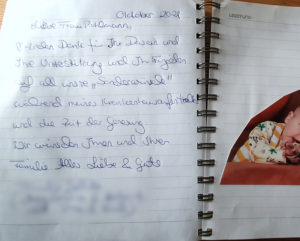 Oktober 2021
Liebe Frau Puhlmann,
Vielen Dank für Ihr Dasein und
Ihre Unterstützung und Ihr
auf all unsere „Sonderwünsche"
während meines Krankenhausaufenthaltes
und die Zeit der Genesung
Wir wünschen Ihnen und Ihrer
Familie Alles Liebe & Gute